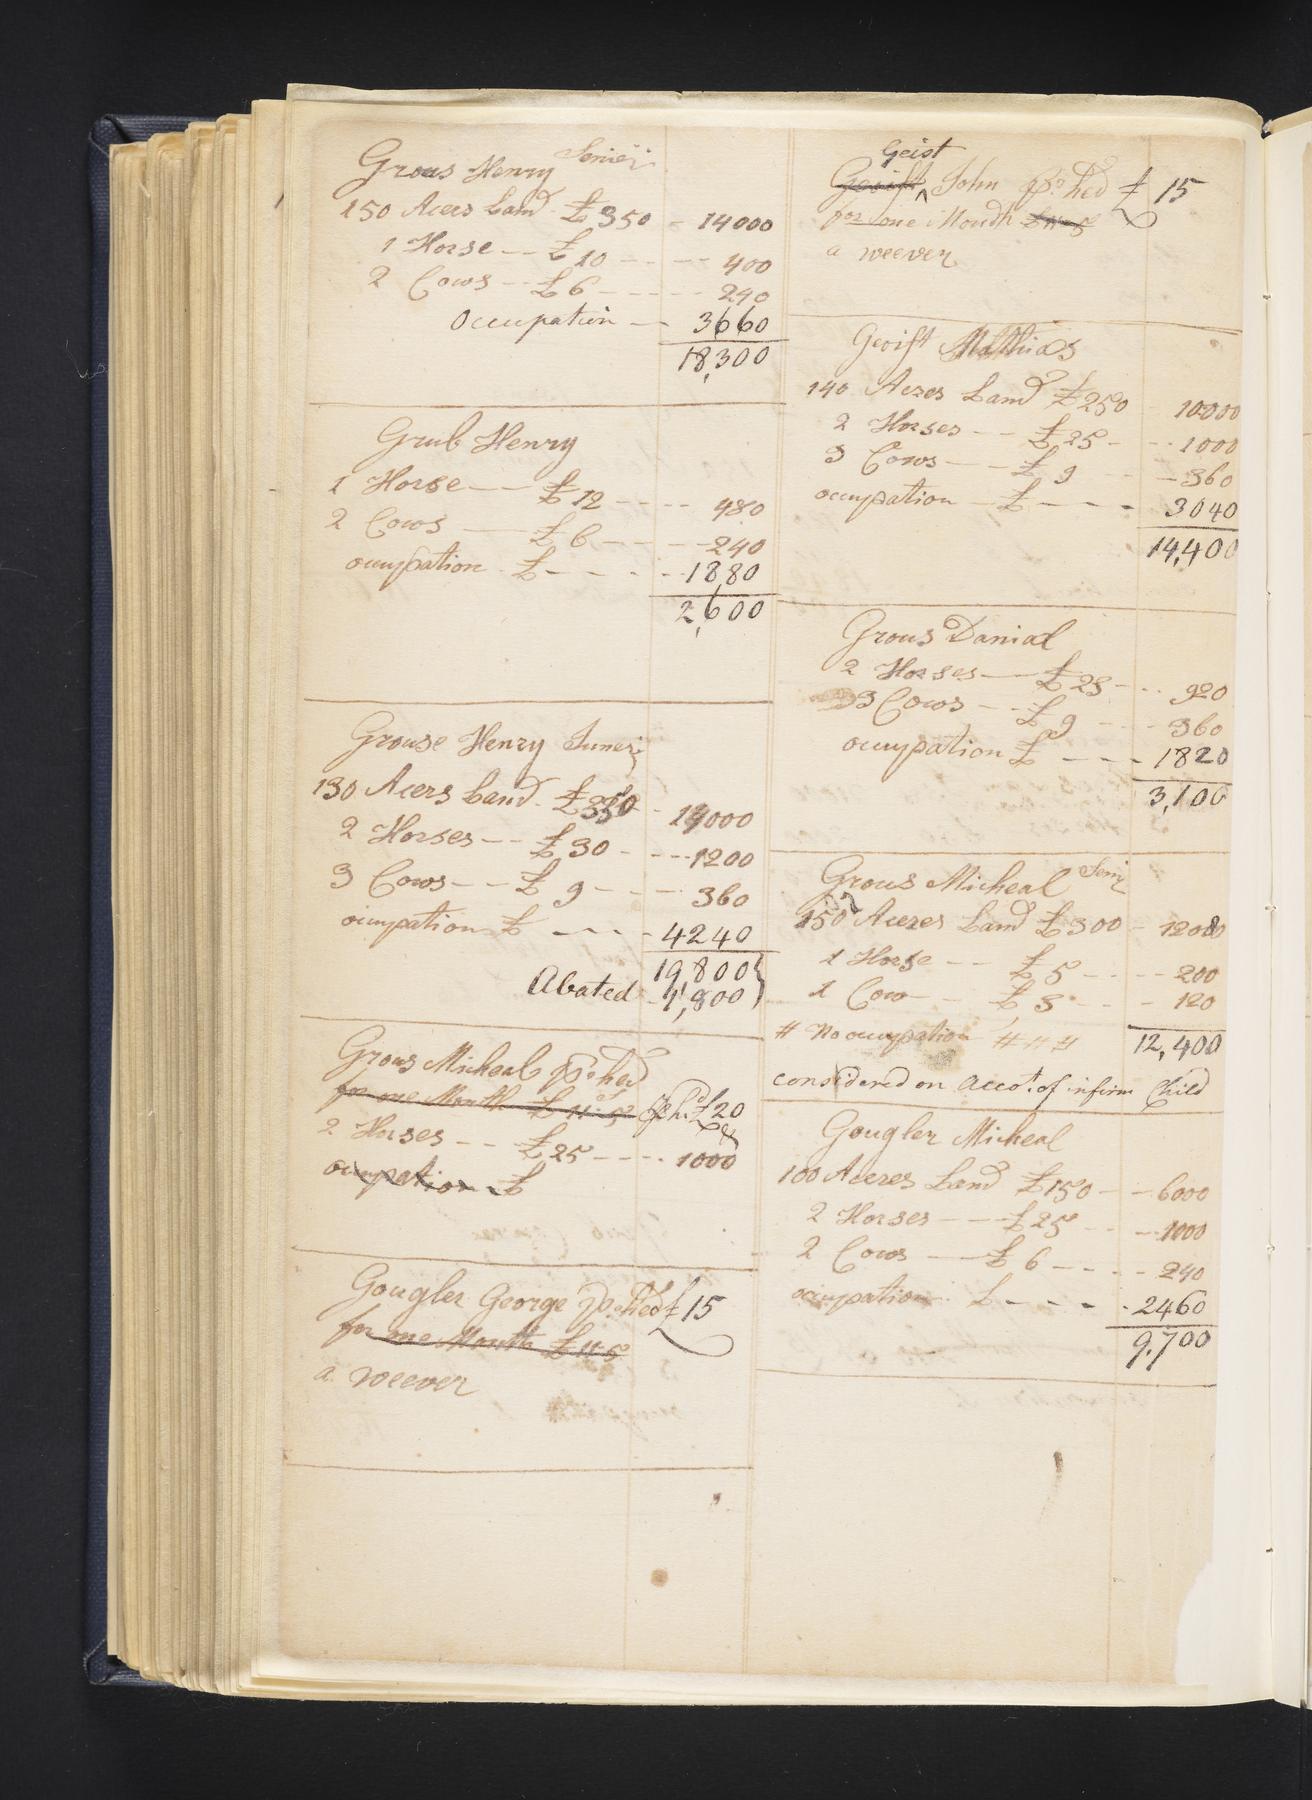 Grous Henry Senier
150 Acers Land £350 - 14000
1 Horse -- £10 ---- 400
2 Cows -- £6 ---- 240
Occupation - 3660
18,300
Grub Henry
1 Horse -- £12 ---- 480
2 Cows -- £6 ---- 240
ocupation £ ---- 1880
2,600
Grouse Henry Junier
130 Acers Land - £350 - 14000
2 Horses -- £30 ---- 1200
3 Cows -- £9 ---- 360
ocupation £ ---- 4240
19,800
Abated - 1,800
Grous Micheal p. hed
for one Month £11:5 p h.d £20
2 Horses -- £25 ---- 1000
ocupation £
Gougler George p. hed £15
for one Month £11:5
a weever
Geist
Geeift John p. hed £15
for one Month £11:5
a weever
Geeift Mathias
140 Acres Land £250 10000
2 Horses -- £25 ---- 1000
3 Cows -- £9 -- 360
occupation £ ---- 3040
14,400
Grous Danial
2 Horses -- £23 ---- 920
3 Cows -- £9 ---- 360
ocupation £ ---- 1820
3,100
Grous Micheal Senir
150 Acers Land £300 - 12000
1 Horse -- £5 ---- 200
1 Cow -- £3 ---- 120
# No ocupation # # # 12,400
considered on acco.t of infirm Child
Gougler Micheal
100 Aceres Land £150 -- 6000
2 Horses --- £25 ---- 1000
2 Cows -- £6 ---- 240
ocupation £ ---- 2460
9,700